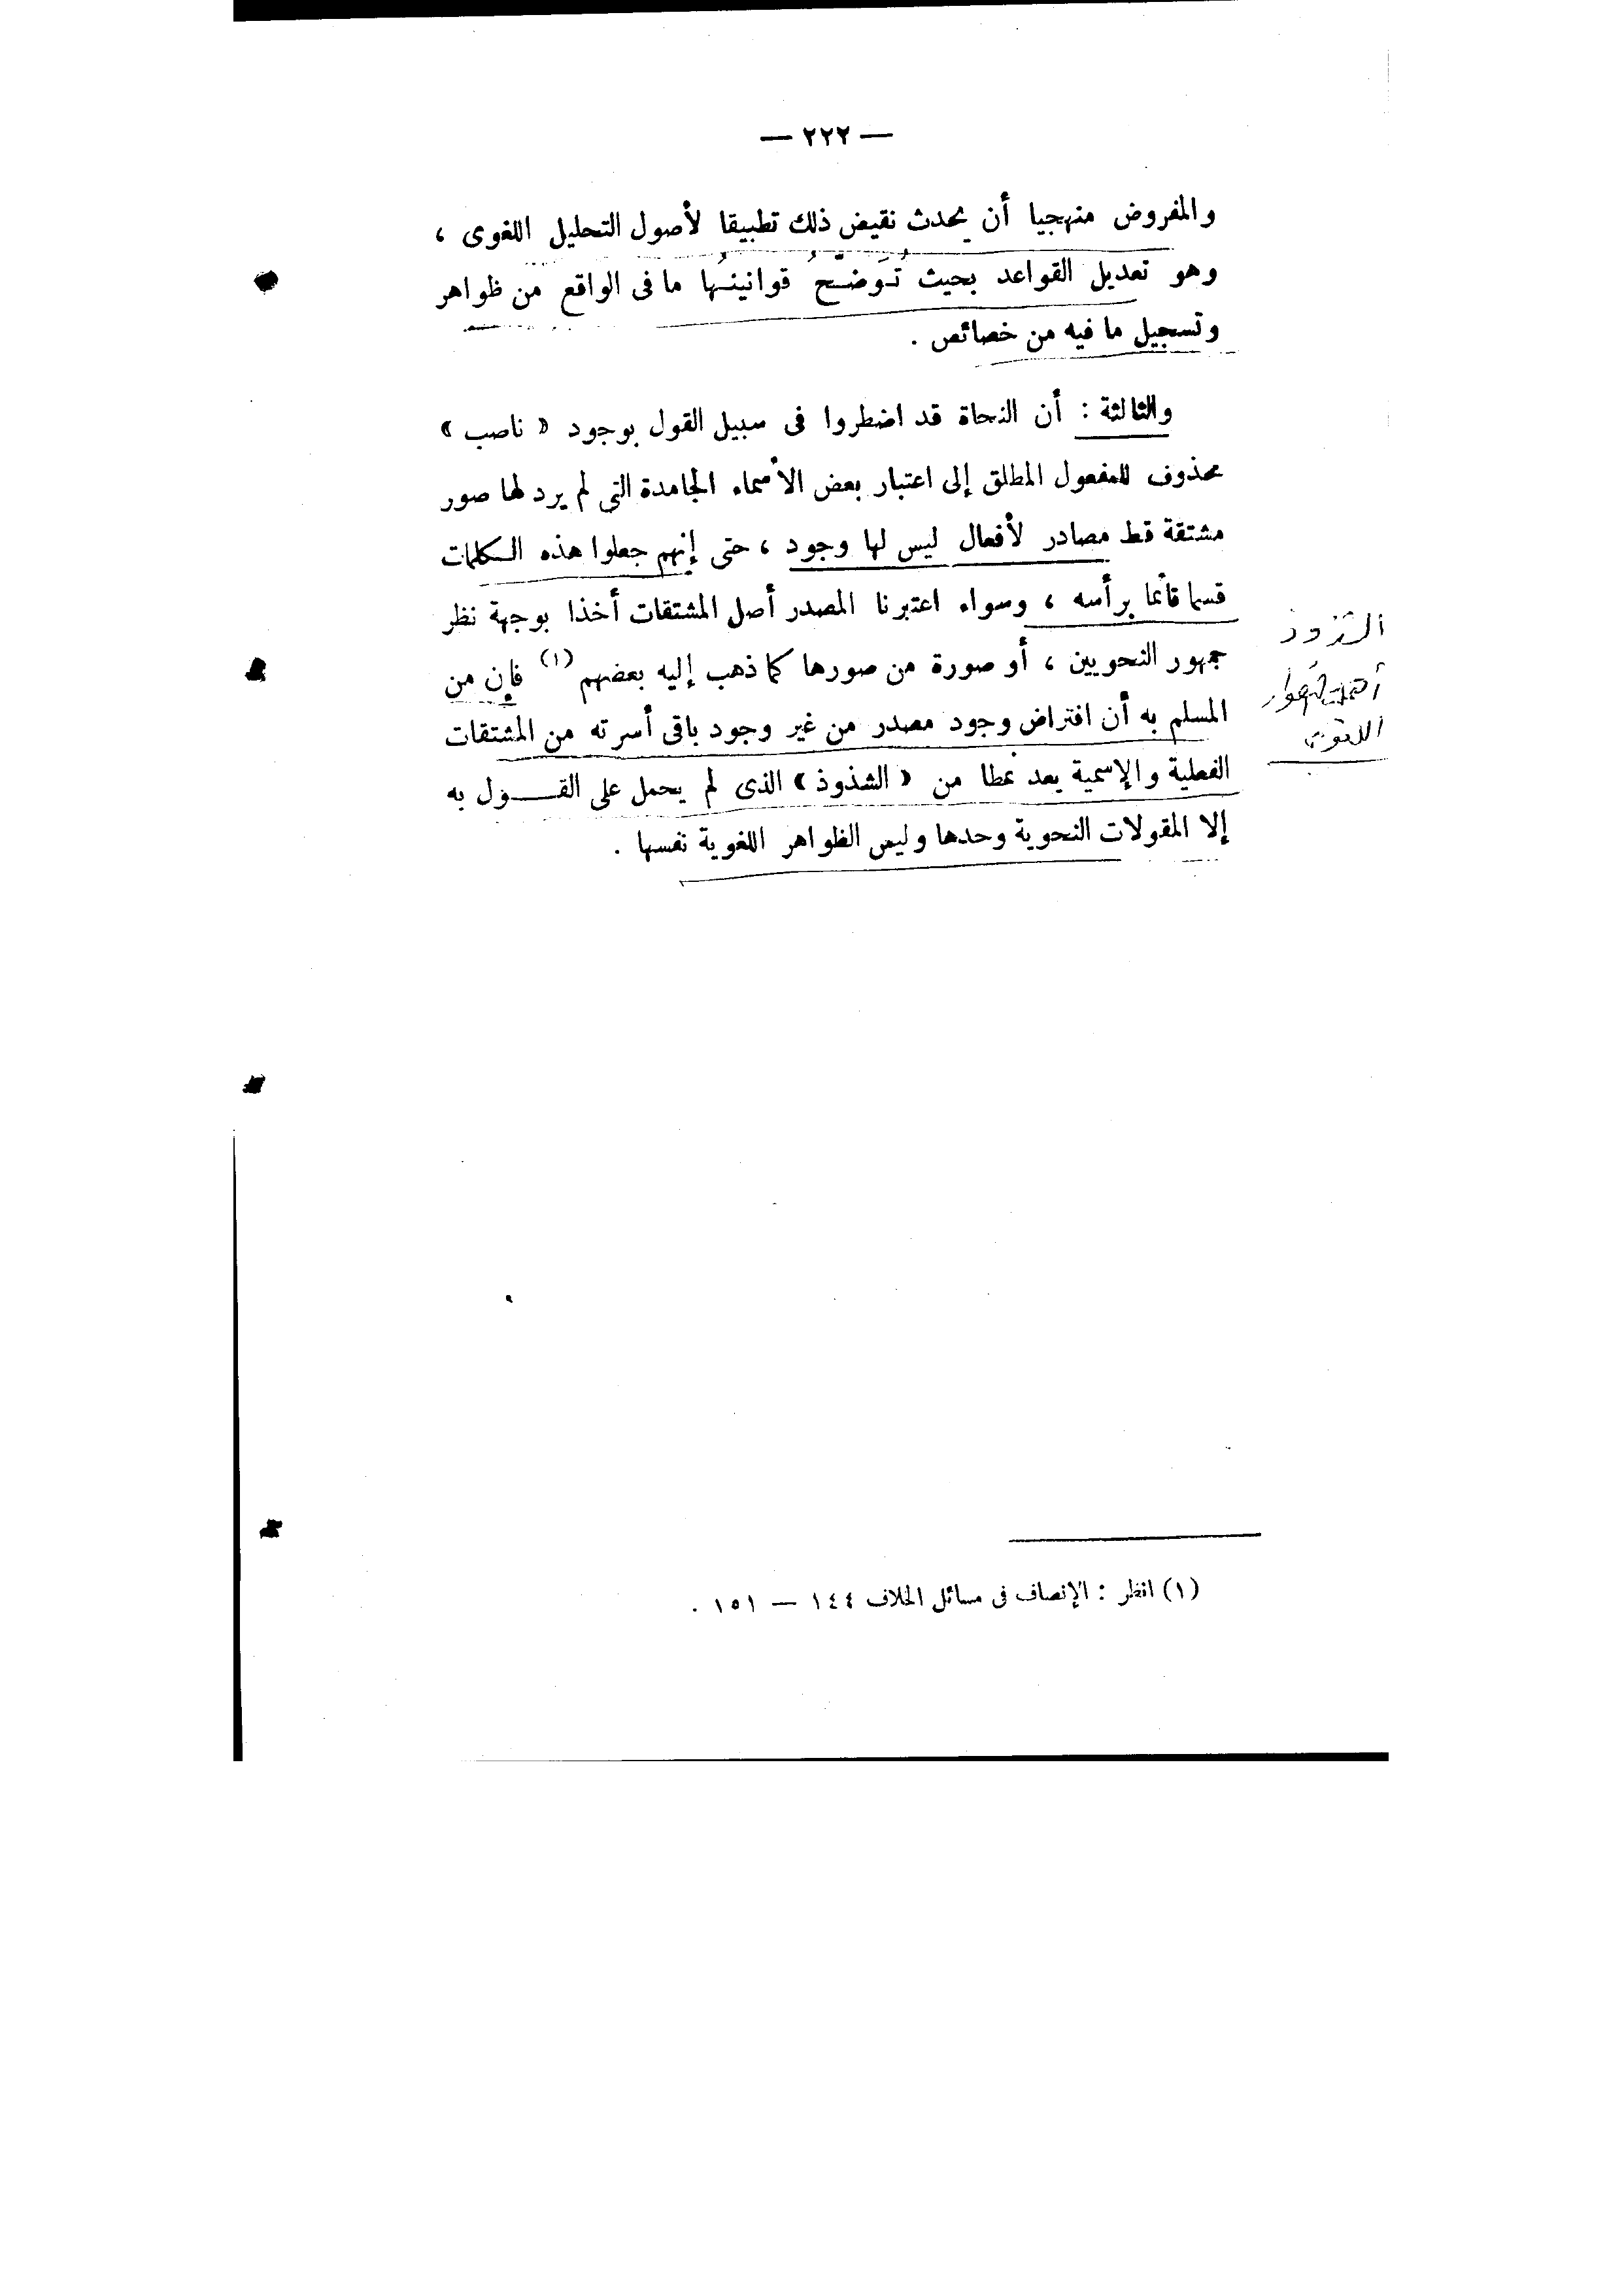 — ٢٢٢ —
والمفروض منهجيا أن يحدث نقيض ذلك تطبيقا لأصول التحليل اللغوى ،
وهو تعديل القواعد بحيث تُوَضِّحُ قوانينُها ما فى الواقع من ظواهر
وتسجيل ما فيه من خصائص .
والثالثة : أن النحاة قد اضطروا فى سبيل القول بوجود « ناصب »
محذوف للمفعول المطلق إلى اعتبار بعض الأسماء الجامدة التى لم يرد لها صور
مشتقة قط مصادر لأفعال ليس لها وجود ، حتى إنهم جعلوا هذه الكلمات
قسما قائما برأسه ، وسواء اعتبرنا المصدر أصل المشتقات أخذا بوجهة نظر
جمهور النحويين ، أو صورة من صورها كما ذهب إليه بعضهم (١) فإن من
المسلم به أن افتراض وجود مصدر من غير وجود باقى أسرته من المشتقات
الفعلية والإسمية يعد نمطا من « الشذوذ » الذى لم يحمل على القــــول به
إلا المقولات النحوية وحدها وليس الظواهر اللغوية نفسها .
الشذوذ
اللغوى
(١) انظر : الإنصاف فى مسائل الخلاف ١٤٤ — ١٥١ .